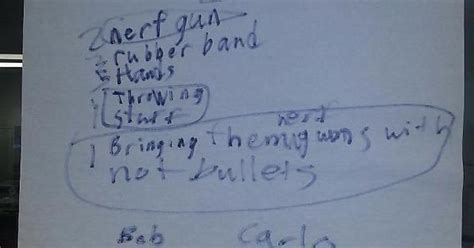 2 nerf gun
rubber band
Hands
1 Throwing
Stuff
nerf
1 Bringing them guns with
not bullets
Bob Carlo